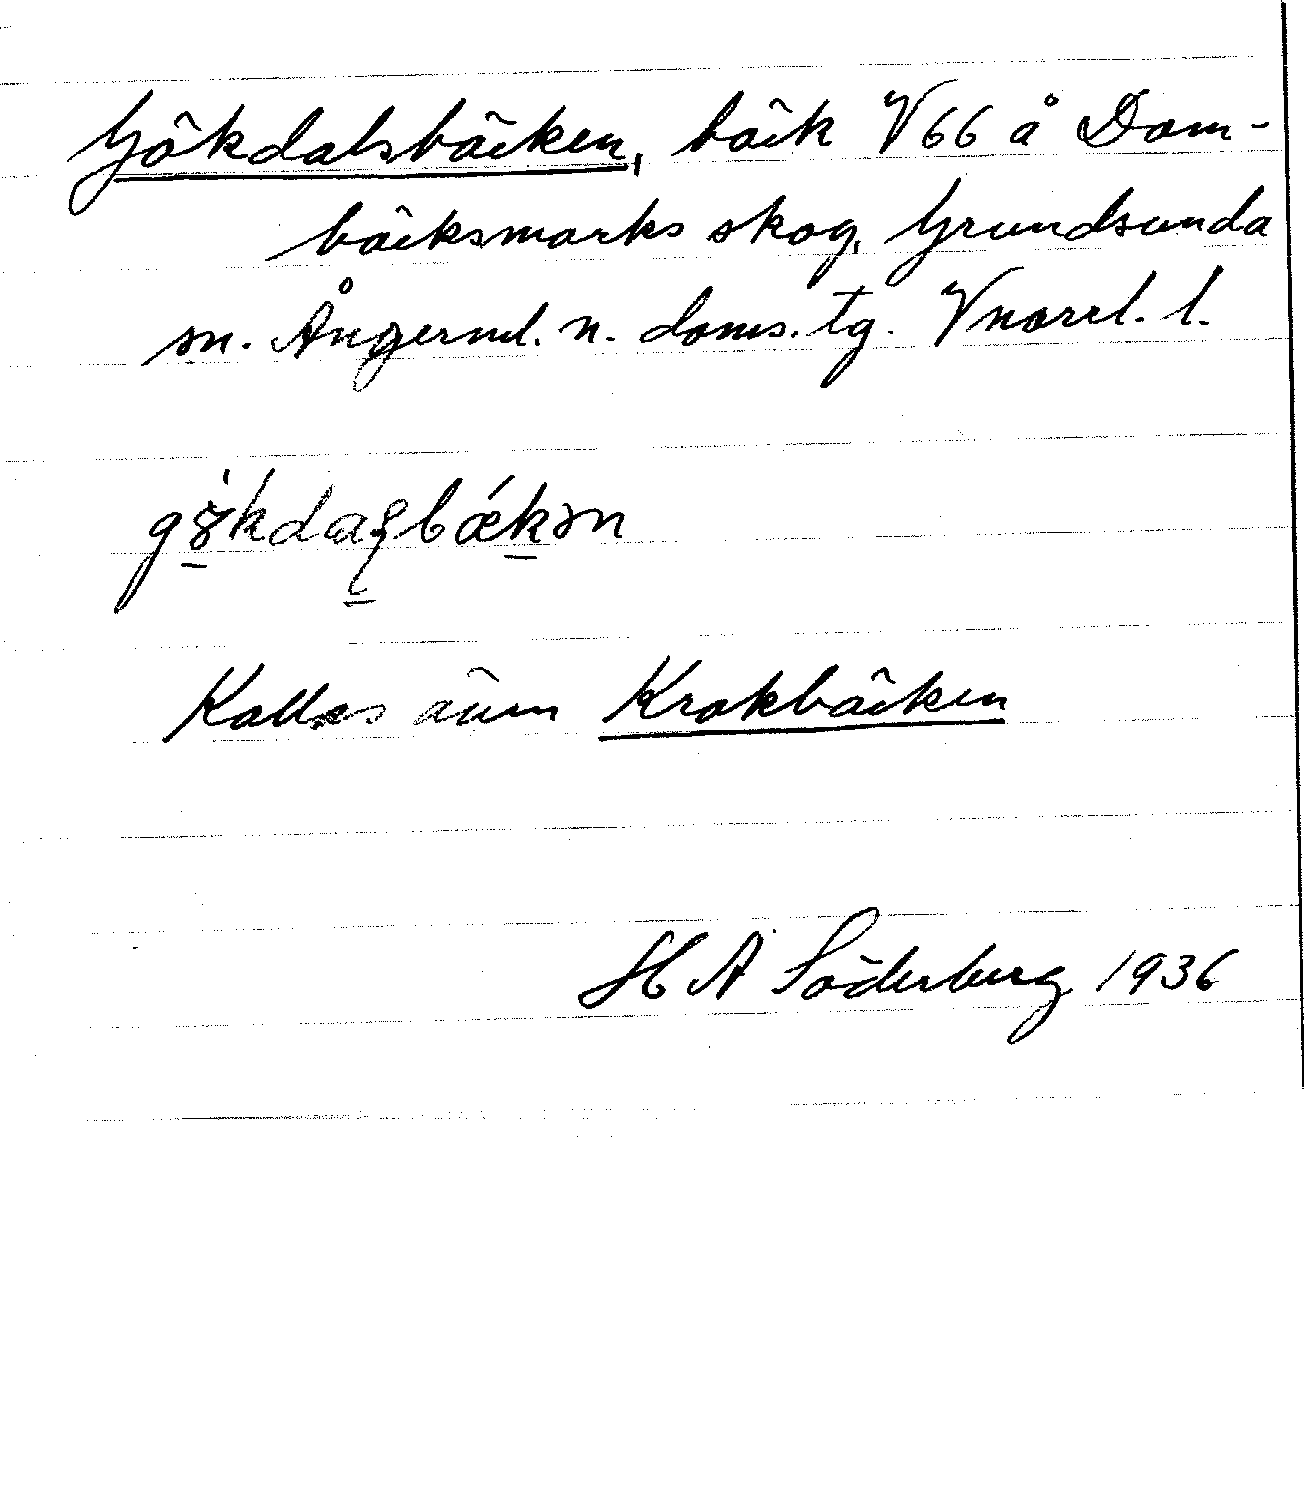 Gökdalsbäcken, bäck V 66 å Dom-
bäcksmarks skog, Grundsunda
sn. Ångerml. n. doms. tg. Vnorrl. l.
Kallas även Krokbäcken
H A Söderberg 1936